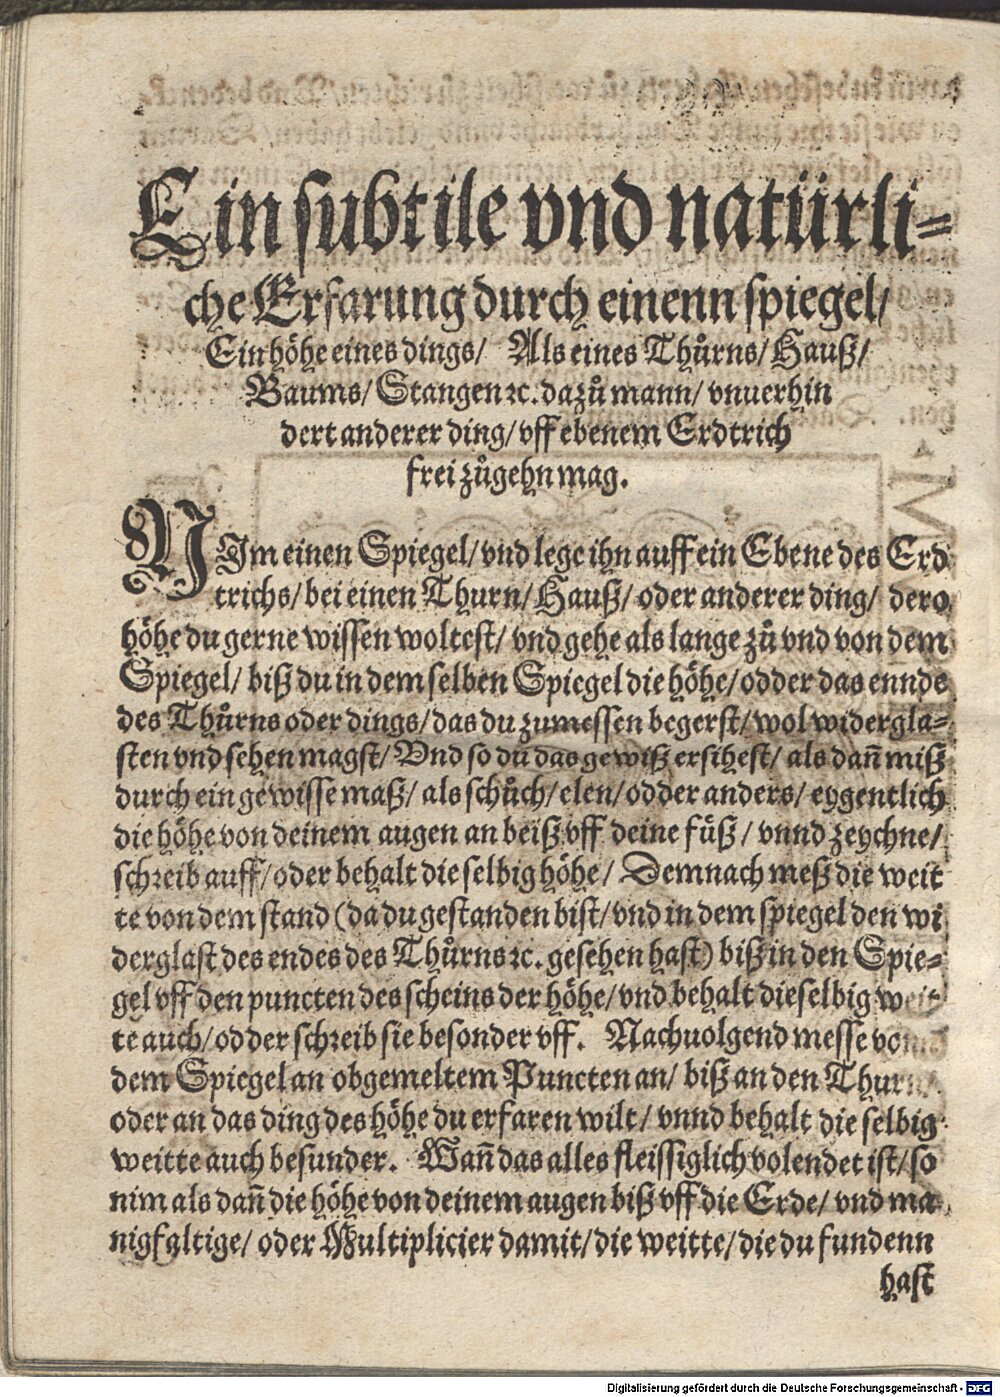 Ein subtile vnd natürli-
che Erfarung durch einenn spiegel/
Ein höhe eines dings/ Als eines Thůrns/ Hauß/
Baums/ Stangen ꝛc. dazů mann/ vnuerhin
dert anderer ding/ vff ebenem Erdtrich
frei zůgehn mag.
NIm einen Spiegel/ vnd lege ihn auff ein Ebene des Erd
trichs/ bei einen Thurn/ Hauß/ oder anderer ding/ dero
höhe du gerne wissen woltest/ vnd gehe als lange zů vnd von dem
Spiegel/ biß du in dem selben Spiegel die höhe/ odder das ennde
des Thůrns oder dings/ das du zumessen begerst/ wol widergla-
sten vnd sehen magst/ Vnd so du das gewiß ersihest/ als dañ miß
durch ein gewisse maß/ als schůch/ elen/ odder anders/ eygentlich
die höhe von deinem augen an beiß vff deine füß/ vnnd zeychne/
schreib auff/ oder behalt die selbig höhe/ Demnach meß die weit
te von dem stand (da du gestanden bist/ vnd in dem spiegel den wi
derglast des endes des Thůrns ꝛc. gesehen hast) biß in den Spie-
gel vff den puncten des scheins der höhe/ vnd behalt dieselbig weit
te auch/ odder schreib sie besonder vff. Nachuolgend messe von
dem Spiegel an obgemeltem Puncten an/ biß an den Thurn/
oder an das ding des höhe du erfaren wilt/ vnnd behalt die selbig
weitte auch besunder. Wañ das alles fleissiglich volendet ist/ so
nim als dañ die höhe von deinem augen biß vff die Erde/ vnd ma
nigfaltige/ oder Multiplicier damit/ die weitte/ die du fundenn
hast
Digitalisierung gefördert durch die Deutsche Forschungsgemeinschaft - DFG